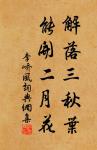 解落三秋葉
能開二月花
李嶠風詞典網集